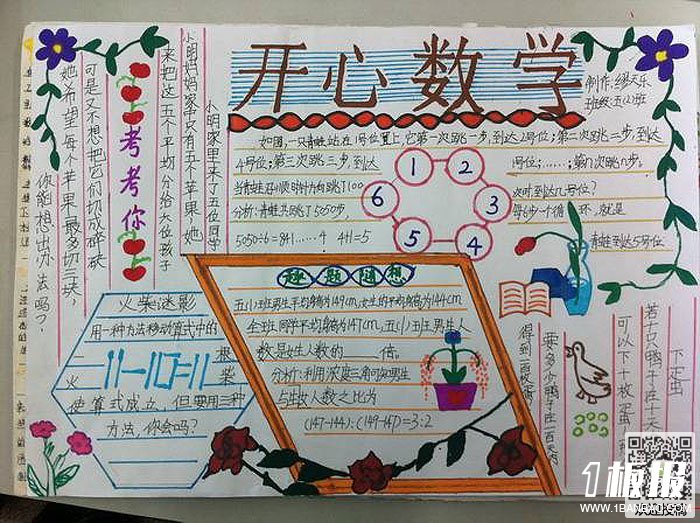 开心数学
制作:缪天乐
班级:五(2)班
如图,一只青蛙站在1号位置上,它第一次跳一步,到达2号位;第二次跳二步,到达
4号位;第三次跳三步,到达
1号位;……;第n次跳n步,
当青蛙沿顺时针方向跳了100
次时到达几号位?
分析:青蛙共跳了5050步,
每6步一个循环,就是
5050÷6=841……4 4+1=5
青蛙到达5号位
1
2
3
4
5
6
考考你
小明家里来了五位同学
小明妈妈家中只有五个苹果,她
来把这五个平均分给六位孩子
可是又不想把它们切成碎块
她希望每个苹果最多切三块,
你能想出办法吗?
火柴迷影
用一种方法移动算式中的
一根
11-10=11
火柴
使算式成立,但要用三种
方法,你会吗?
趣题随想
五(1)班男生平均身高为149cm,女生的平均身高为144cm
全班同学平均身高为147cm,五(1)班男生人
数是女生人数的 倍。
分析:利用浓度三角可知男生
与女生人数之比为
(147-144):(149-147)=3:2
下蛋
若十只鸭子在十天
可以下十枚蛋
要多少鸭子在一百天内
得到一百枚蛋
1板报
WWW.1BANBAO.COM
欢迎投稿